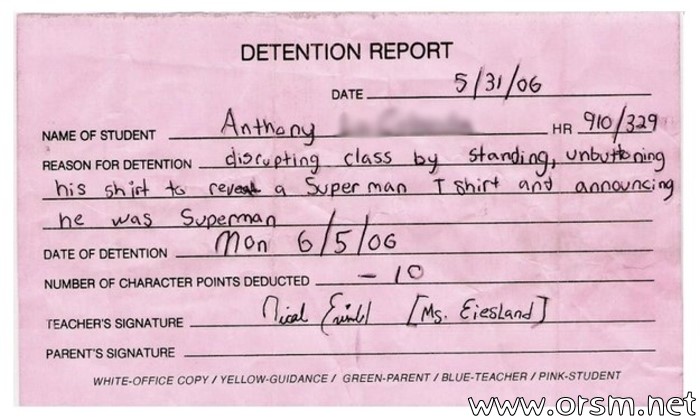 DETENTION REPORT
DATE 5/31/06
NAME OF STUDENT Anthony HR 910/329
REASON FOR DETENTION disrupting class by standing, unbuttoning
his shirt to reveal a Superman T shirt and announcing
he was Superman
DATE OF DETENTION Mon 6/5/06
NUMBER OF CHARACTER POINTS DEDUCTED - 10
TEACHER'S SIGNATURE [Ms. Eiesland]
PARENT'S SIGNATURE
WHITE-OFFICE COPY / YELLOW-GUIDANCE / GREEN-PARENT / BLUE-TEACHER / PINK-STUDENT
www.orsm.net